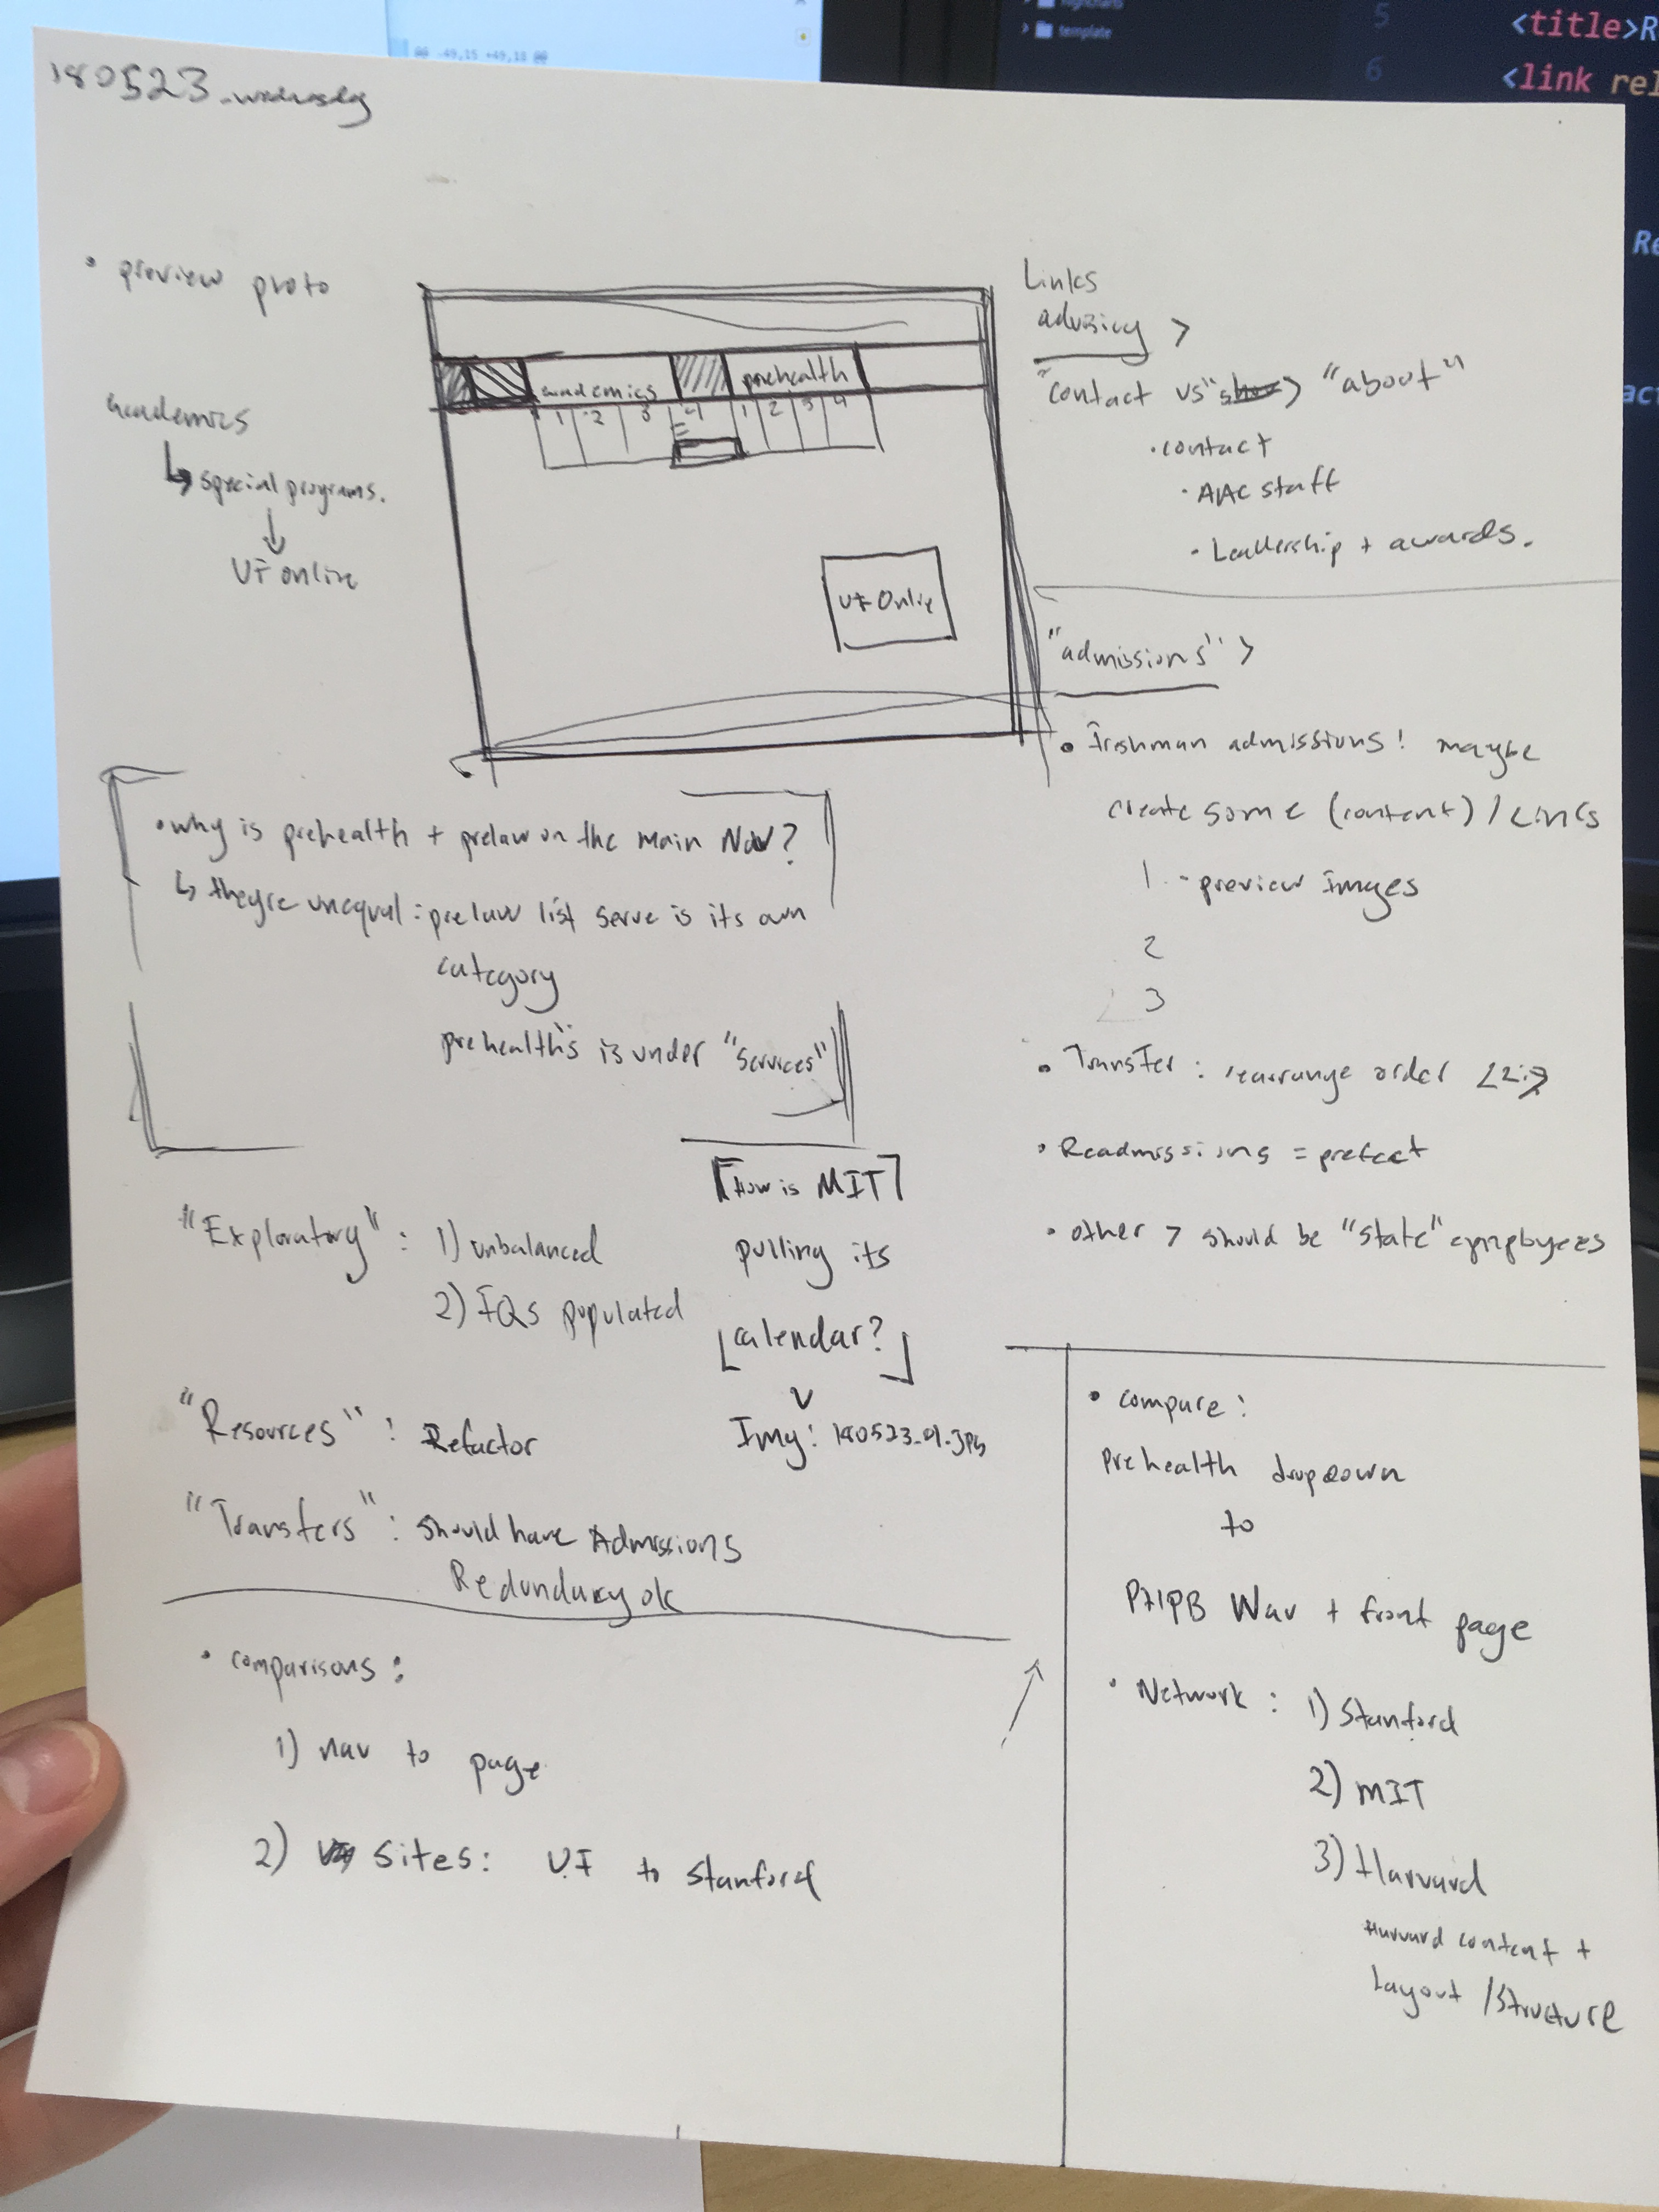 @@ -49,15 +49,18 @@
template
5
<title>R
6
<link rel
Re
act
180523_wednesday
• preview proto
academics
↳ special programs.
↓
UF online
academics
prehealth
1 2 3 4
1 2 3 4
UF Online
Links
advising >
contact vs "about"
• contact
• AAC staff
• Leadership + awards.
"admissions" >
• Freshman admissions! maybe
create some (content) / Links
1 - preview images
2
3
• Transfer: rearrange order
• Readmissions = prefect
• other > should be "state" employees
• why is prehealth + prelaw on the main Nav?
↳ theyre unequal: prelaw list serve is its own
category
prehealth's is under "Services"
"Exploratory": 1) unbalanced
2) populated
[How is MIT]
pulling its
[calendar?]
v
Img: 180523_01.jpg
"Resources": Refactor
"Transfers": should have Admissions
Redundancy ok
• comparisons:
1) nav to page
2) sites: UF to Stanford
• compare:
prehealth dropdown
to
+ front page
• Network: 1) Stanford
2) MIT
3) Harvard
Harvard content +
Layout / Structure